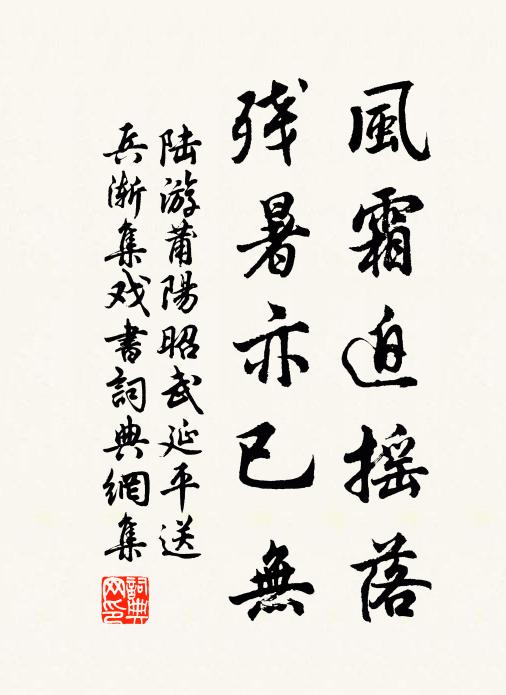 風霜迫摇落
残暑亦已無
陆游莆陽昭武延平送
兵渐集戏書詞典網集
詞典网印